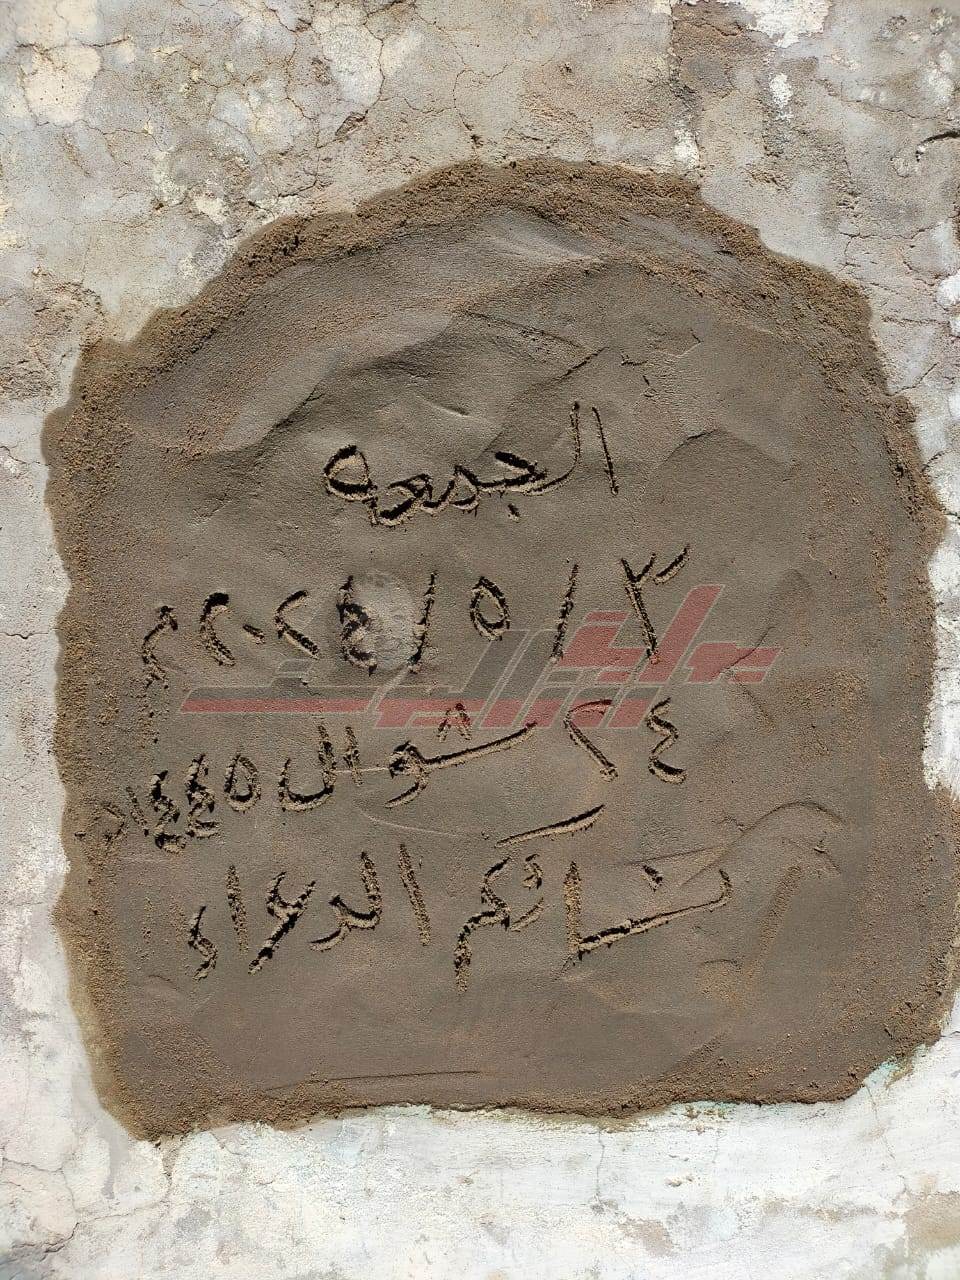 الجمعه
٣ / ٥ / ٢٠٢٤ م
٢٤ شوال ١٤٤٥ ه
نسائكم الدعاء